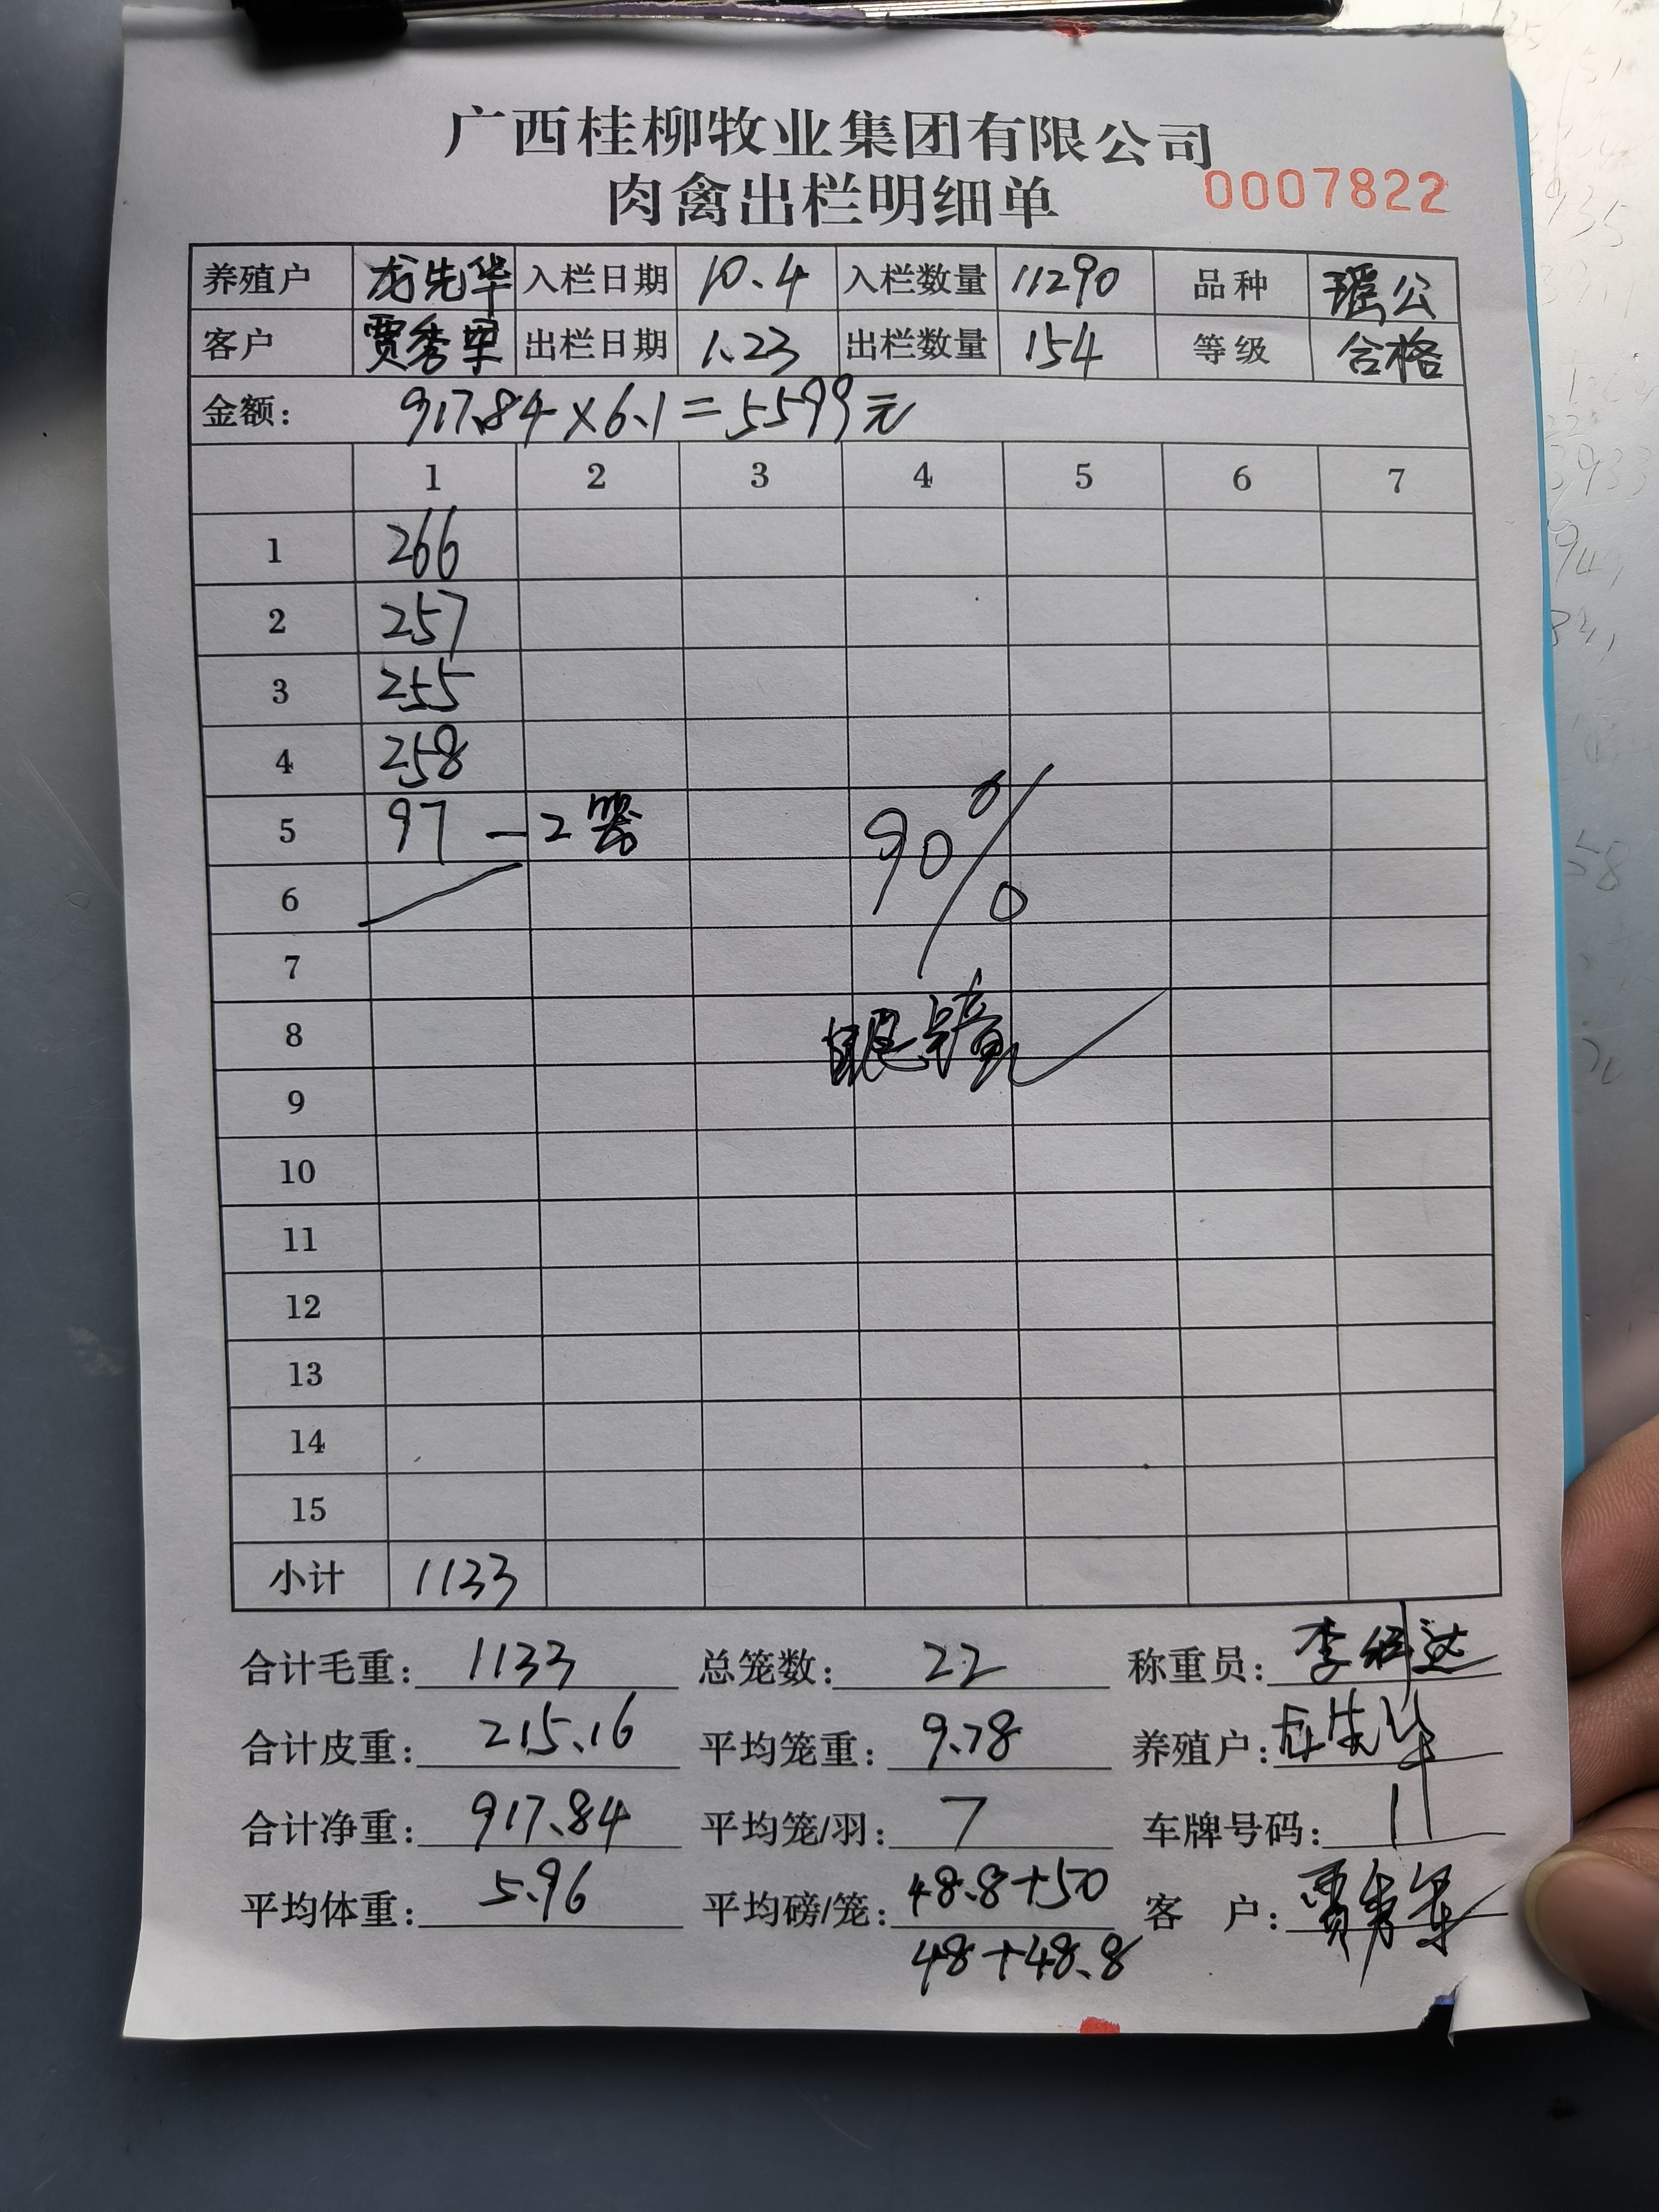 广西桂柳牧业集团有限公司
肉禽出栏明细单
0007822
养殖户 龙先华 入栏日期 10.4 入栏数量 11290 品种 瑶公
客户 贾秀军 出栏日期 1.23 出栏数量 154 等级 合格
金额: 917.84×6.1=5599元
1 2 3 4 5 6 7
1 266
2 257
3 255
4 258
5 97 -2 90%
6
7
8 眼睛
9
10
11
12
13
14
15
小计 1133
合计毛重: 1133 总笼数: 22 称重员: 李
合计皮重: 215.16 平均笼重: 9.78 养殖户: 龙先华
合计净重: 917.84 平均笼/羽: 7 车牌号码: 11
平均体重: 5.96 平均磅/笼: 48.8+50 客 户: 贾秀军
48+48.8